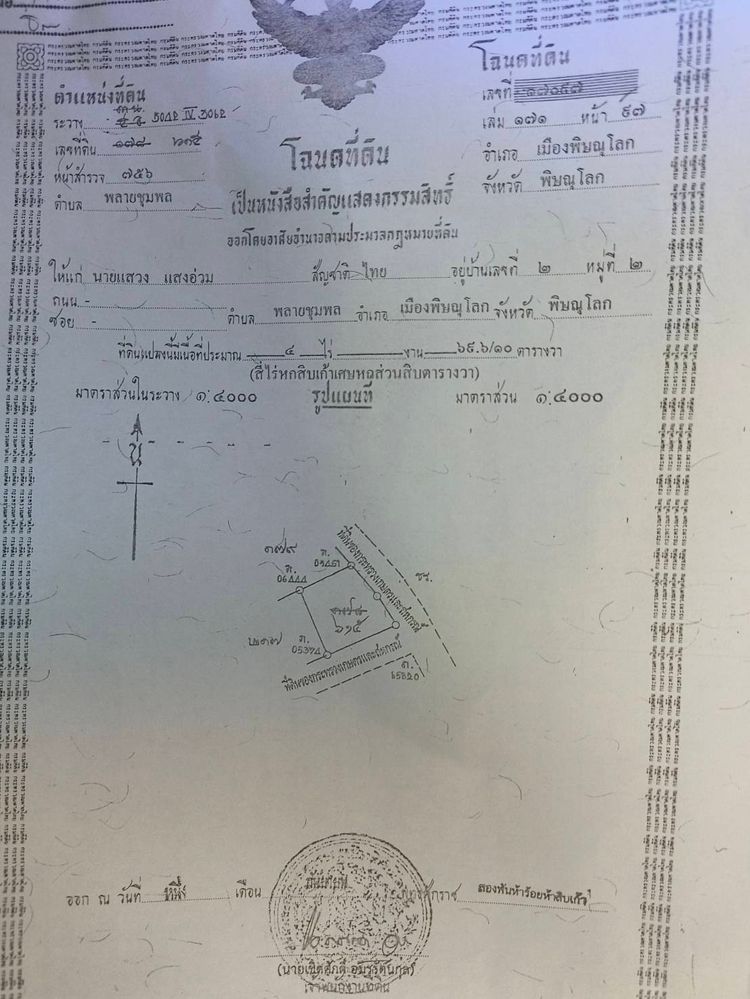 โฉนดที่ดิน
ตำแหน่งที่ดิน
เลขที่
ระวาง 5042 IV 3062
เล่ม ๑๗๑ หน้า ๙๗
เลขที่ดิน ๑๗๘ ๖๑๕
โฉนดที่ดิน
อำเภอ เมืองพิษณุโลก
หน้าสำรวจ ๗๕๖
จังหวัด พิษณุโลก
ตำบล พลายชุมพล
เป็นหนังสือสำคัญแสดงกรรมสิทธิ์
ออกโดยอาศัยอำนาจตามประมวลกฎหมายที่ดิน
ให้แก่ นายแสวง แสงอ่วม สัญชาติ ไทย อยู่บ้านเลขที่ ๒ หมู่ที่ ๒
ถนน -
ซอย - ตำบล พลายชุมพล อำเภอ เมืองพิษณุโลก จังหวัด พิษณุโลก
ที่ดินแปลงนี้มีเนื้อที่ประมาณ ๔ ไร่ งาน ๖๙.๖/๑๐ ตารางวา
(สี่ไร่หกสิบเก้าเศษหกส่วนสิบตารางวา)
มาตราส่วนในระวาง ๑:๔๐๐๐ รูปแผนที่ มาตราส่วน ๑:๔๐๐๐
น
๑๗๙
ที่ดินของกระทรวงเกษตรและสหกรณ์
๑๗๘
๖๑๕
๒๑๗
05374
ที่ดินของกระทรวงเกษตรและสหกรณ์
ออก ณ วันที่ หนึ่ง เดือน พุทธศักราช สองพันห้าร้อยห้าสิบเก้า
เจ้าพนักงานที่ดิน